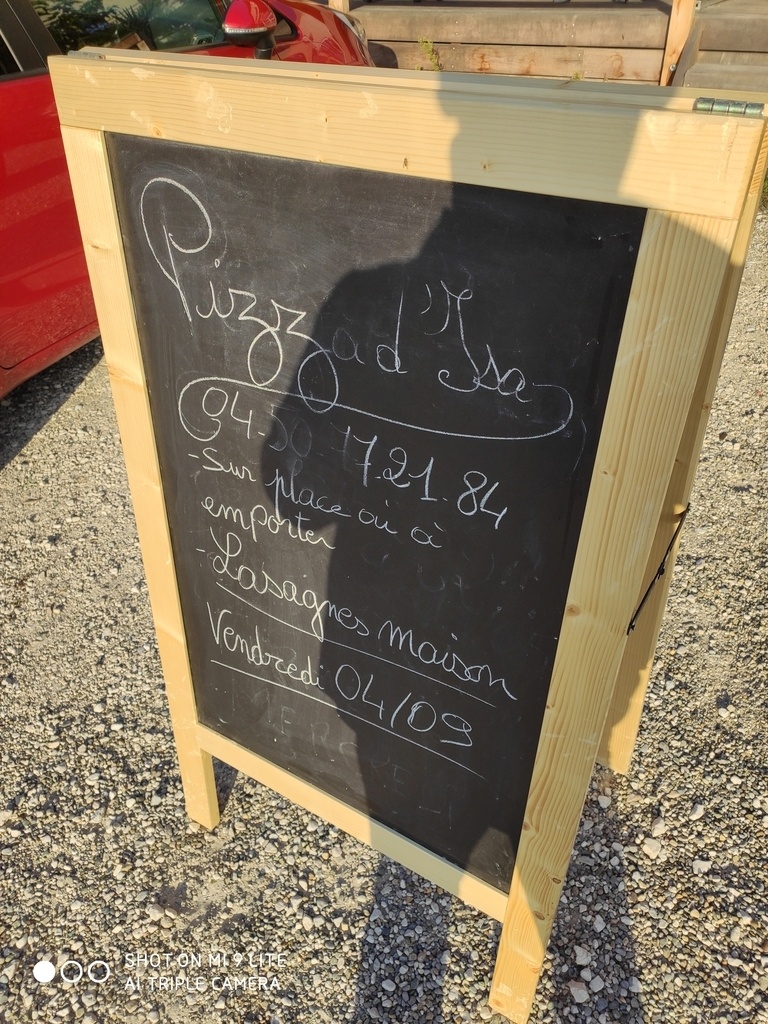 Pizza d'Isa
04-50 17.21.84
- Sur place ou à
emporter
- Lasagnes maison
Vendredi 04/09
SHOT ON MI 9 LITE
AI TRIPLE CAMERA